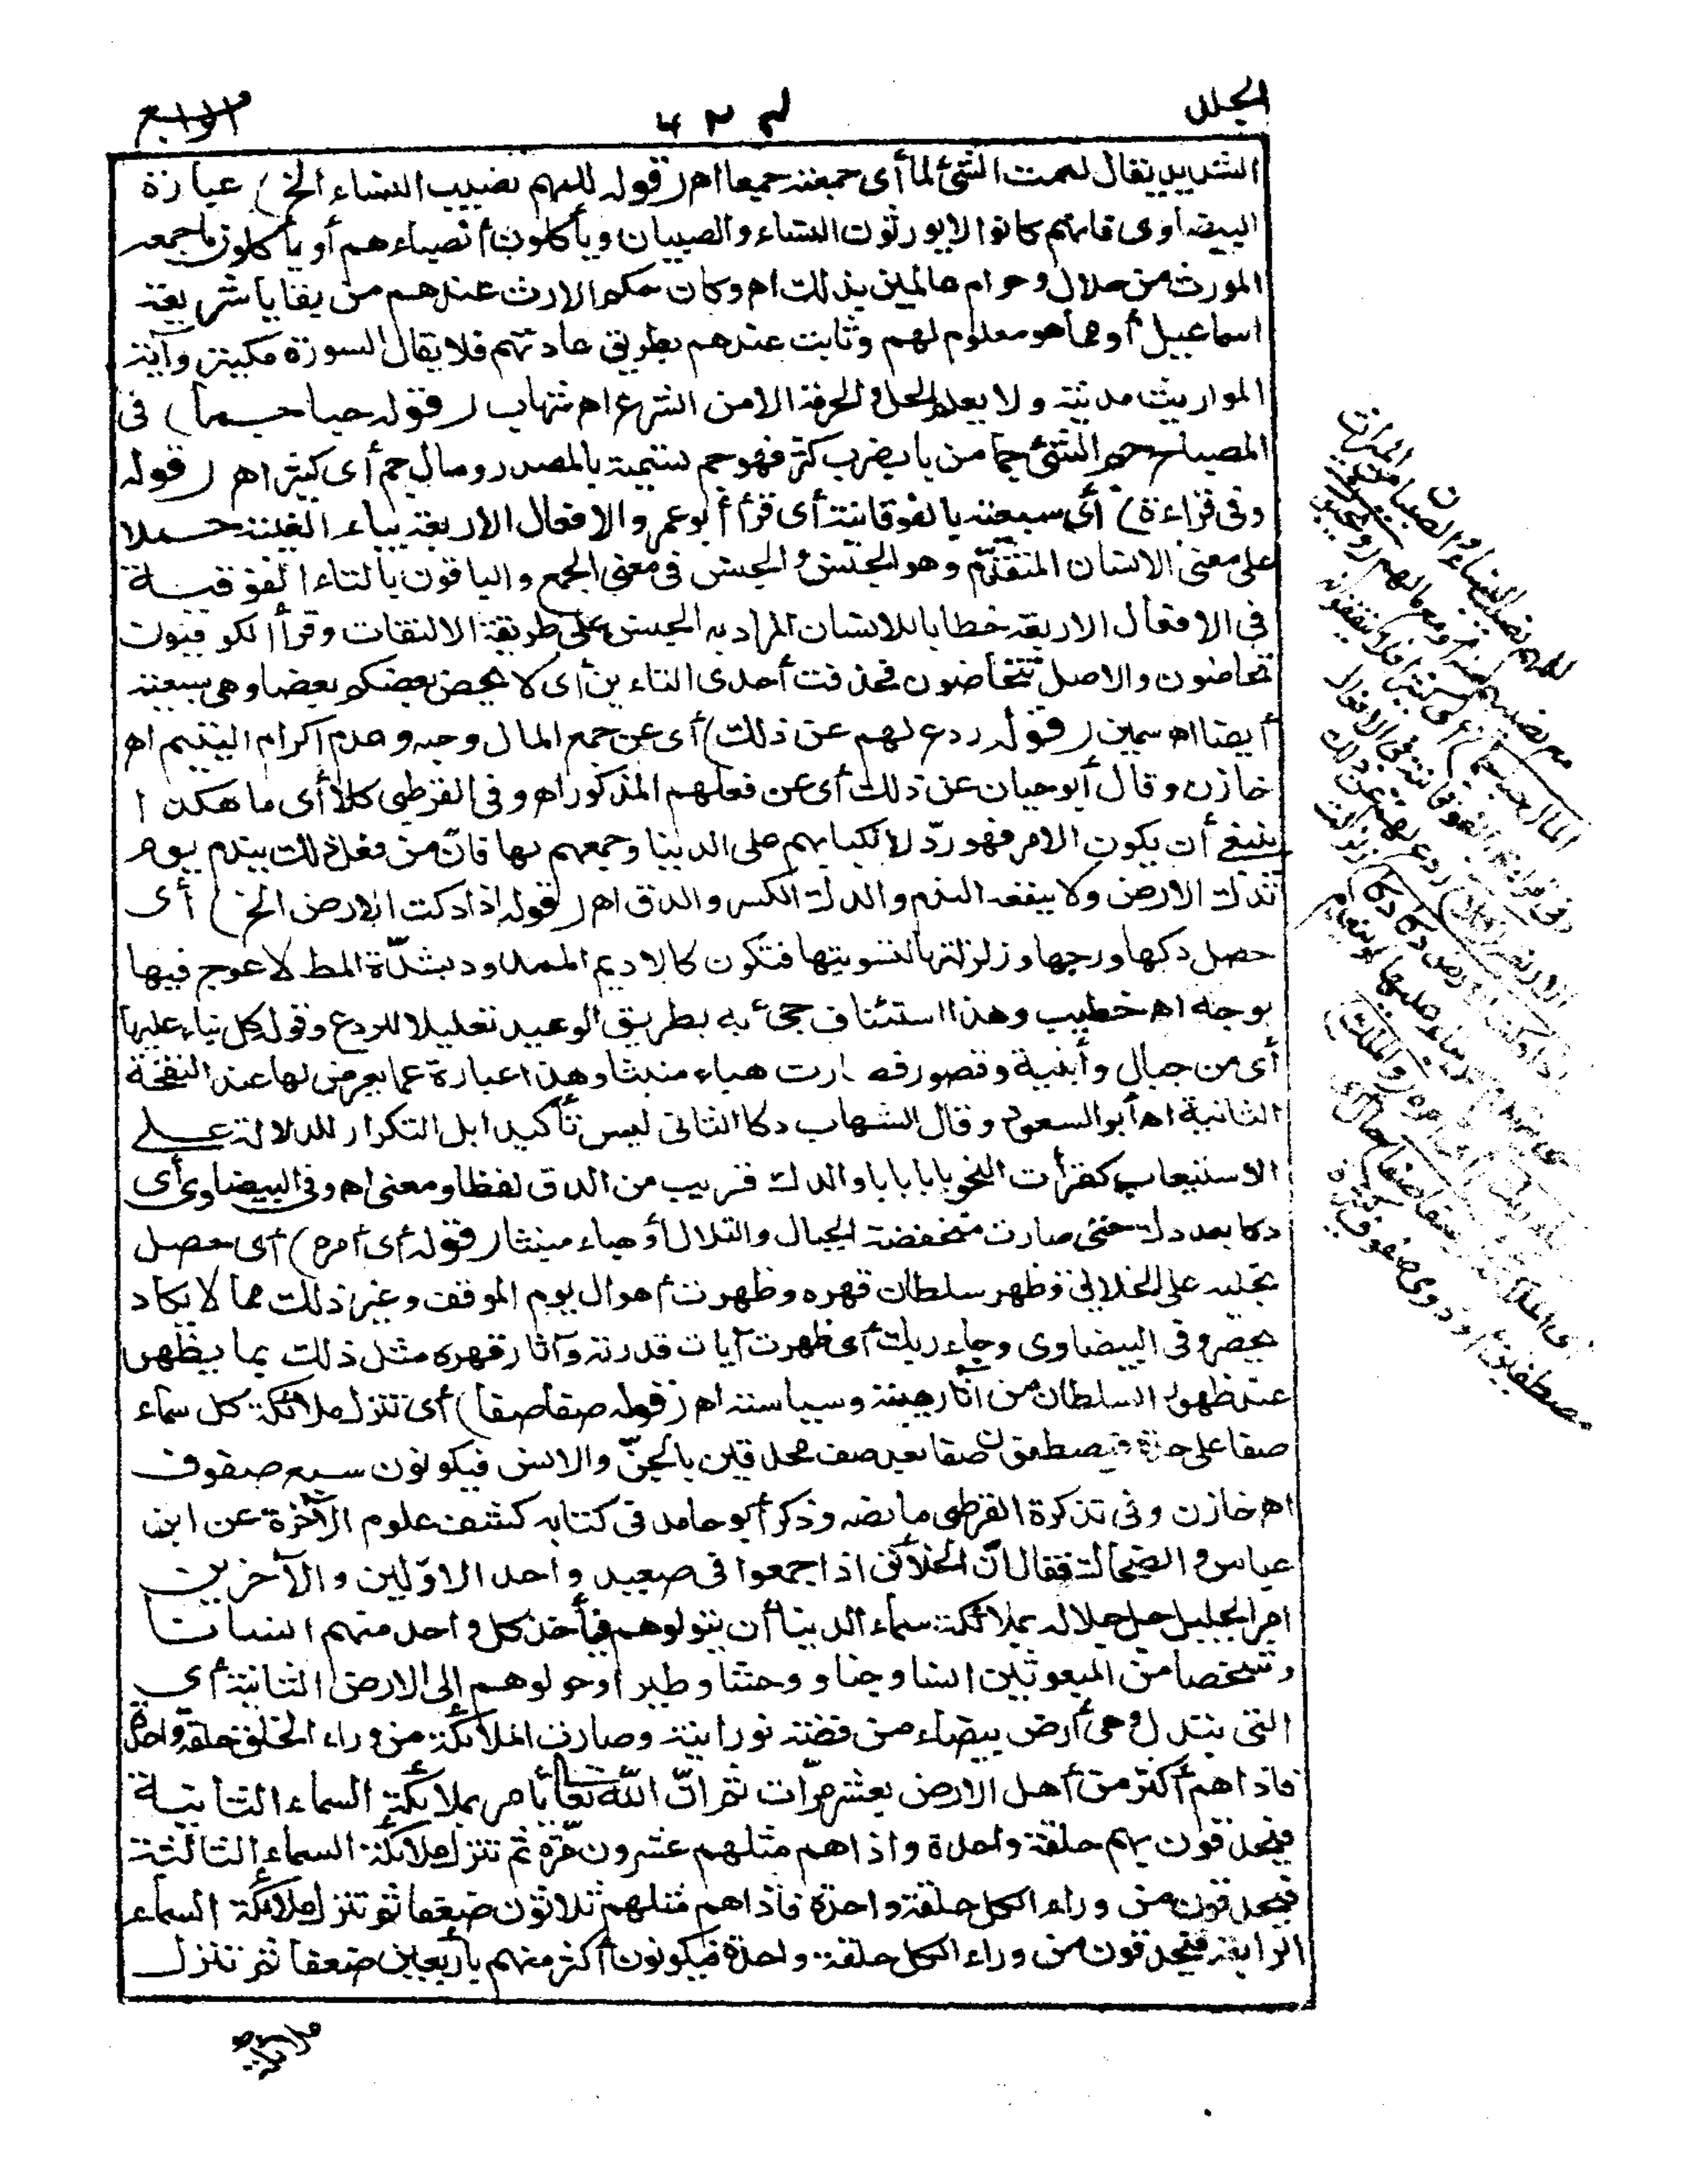 الجلد
الرابع
الشديد يقال لممت الشئ لما أى جمعته جميعا اه (قوله للمهم نصيب النساء الخ) عبارة
البيضاوى فانهم كانوا لا يورثون النساء والصبيان ويأكلون أنصباءهم أو يأكلون ما جمعه
المورث من حلال وحرام عالمين بذلك اه وكان حكم الارث عندهم من بقايا شريعة
اسماعيل أو مما هو معلوم لهم وثابت عندهم بطريق عادتهم فلا يقال السورة مكية وآية
المواريث مدنية ولا يعلم الحل والحرمة الا من الشرع اه شهاب (قوله حبا جما) فى
المصباح جم الشئ جما من باب ضرب كثر فهو جم تسمية بالمصدر ومال جم أى كثير اه (قوله
وفى قراءة) أى سبعية بالفوقانية أى قرأ أبو عمرو الافعال الاربعة بياء الغيبة حملا
على معنى الانسان المتقدّم وهو الجنس والجنس فى معنى الجمع والباقون بالتاء الفوقية
فى الافعال الاربعة خطابا للانسان المراد به الجنس على طريقة الالتفات وقرأ الكوفيون
تحاضون والاصل تتحاضون فحذفت أحدى التاءين أى لا يحض بعضكم بعضا وهى سبعية
أيضا اه سمين (قوله ردع لهم عن ذلك) أى عن جمع المال وحبه وعدم اكرام اليتيم اه
خازن وقال أبو حيان عن ذلك أى عن فعلهم المذكور اه وفى القرطبى كلا أى ما هكذا
ينبغى أن يكون الامر فهو ردّ لانكبابهم على الدنيا وجمعهم لها فانّ من فعل ذلك يندم يوم
تدك الارض ولا ينفعه الندم والدك الكسر والدق اه (قوله اذا دكت الارض الخ) أى
حصل دكها ورجها وزلزلتها لتسويتها فتكون كالاديم الممدود بشدّة المط لا عوج فيها
بوجه اه خطيب وهذا استئناف جئ به بطريق الوعيد تعليلا للردع وقوله كل بناء عليها
أى من جبال وأبنية وقصور فصارت هباء منبثا وهذا عبارة عما يعرض لها عند النفخة
الثانية اه أبو السعود وقال الشهاب دكا الثانى ليس تأكيدا بل التكرار للدلالة على
الاستيعاب كقرأت النحو بابا بابا والدك قريب من الدق لفظا ومعنى اه وفى البيضاوى أى
دكا بعد دك حتى صارت منخفضة الجبال والتلال أو هباء منبثا (قوله أى أمره) أى حصل
تجليه على الخلائق وظهر سلطان قهره وظهرت أهوال يوم الموقف وغير ذلك مما لا يكاد
يحصر وفى البيضاوى وجاء ربك أى ظهرت آيات قدرته وآثار قهره مثل ذلك بما يظهر
عند ظهور السلطان من آثار هيبته وسياسته اه (قوله صفا صفا) أى تنزل ملائكة كل سماء
صفا على حدة فيصطفون صفا بعد صف محدقين بالجنّ والانس فيكونون سبع صفوف
اه خازن وفى تذكرة القرطبى ما نصه وذكر أبو حامد فى كتابه كشف علوم الآخرة عن ابن
عباس والضحاك فقال انّ الخلائق اذا جمعوا فى صعيد واحد الاوّلين والآخرين
امر الجليل جل جلاله بملائكة سماء الدنيا أن يتولوهم فيأخذ كل واحد منهم انسانا
وشخصا من المبعوثين انسا وجنا ووحشا وطيرا وحولوهم الى الارض الثانية أى
التى تبدل وهى أرض بيضاء من فضة نورانية وصارت الملائكة من وراء الخلق حلقة واحدة
فاذا هم أكثر من أهل الارض بعشر مرّات ثم انّ اللّه تعالى يأمر بملائكة السماء الثانية
فيحدقون بهم حلقة واحدة واذا هم مثلهم عشرون مرّة ثم تنزل ملائكة السماء الثالثة
فيحدقون من وراء الكل حلقة واحدة فاذا هم مثلهم ثلاثون ضعفا ثم تنزل ملائكة السماء
الرابعة فيحدقون من وراء الكل حلقة واحدة فيكونون أكثر منهم بأربعين ضعفا ثم تنزل
ملائكة